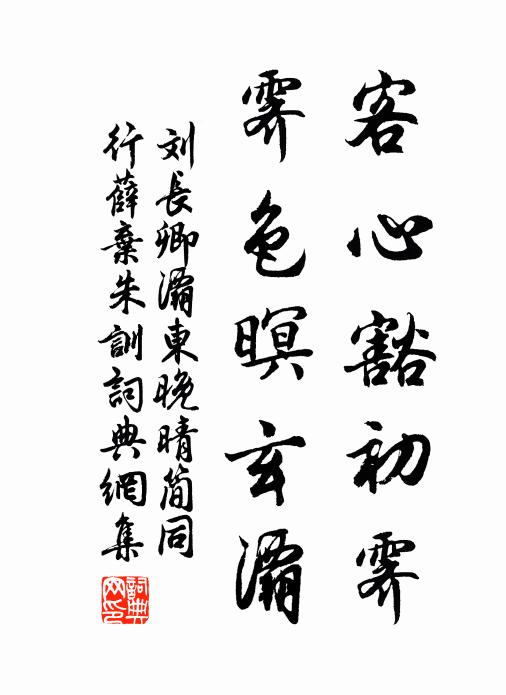 客心豁初霽
霽色暝玄灞
刘長卿灞東晚晴简同
行薛棄朱訓詞典網集
詞典网印